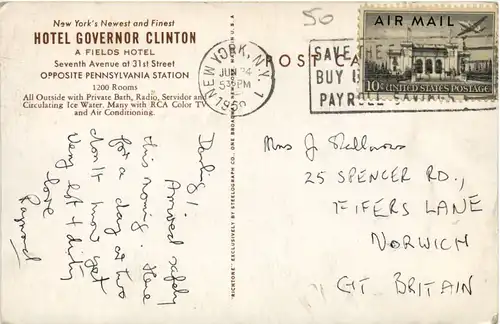 New York's Newest and Finest
HOTEL GOVERNOR CLINTON
A FIELDS HOTEL
Seventh Avenue at 31st Street
OPPOSITE PENNSYLVANIA STATION
1200 Rooms
All Outside with Private Bath, Radio, Servidor and
Circulating Ice Water. Many with RCA Color TV
and Air Conditioning.
Darling!
Arrived safely
this morning. Here
for a day or two
don't know yet
Very hot & dirty
love
Raymond
"RICHTONE" EXCLUSIVELY BY STEELOGRAPH CO., ONE
U.S.A.
50
POST CA
NEW YORK, N.Y. 1
JUN 24
PM
SAVE
BUY U
PAYROLL SAVINGS
AIR MAIL
10¢ UNITED STATES POSTAGE
Mrs J
25 SPENCER RD.,
FIFERS LANE
NORWICH
GT BRITAIN